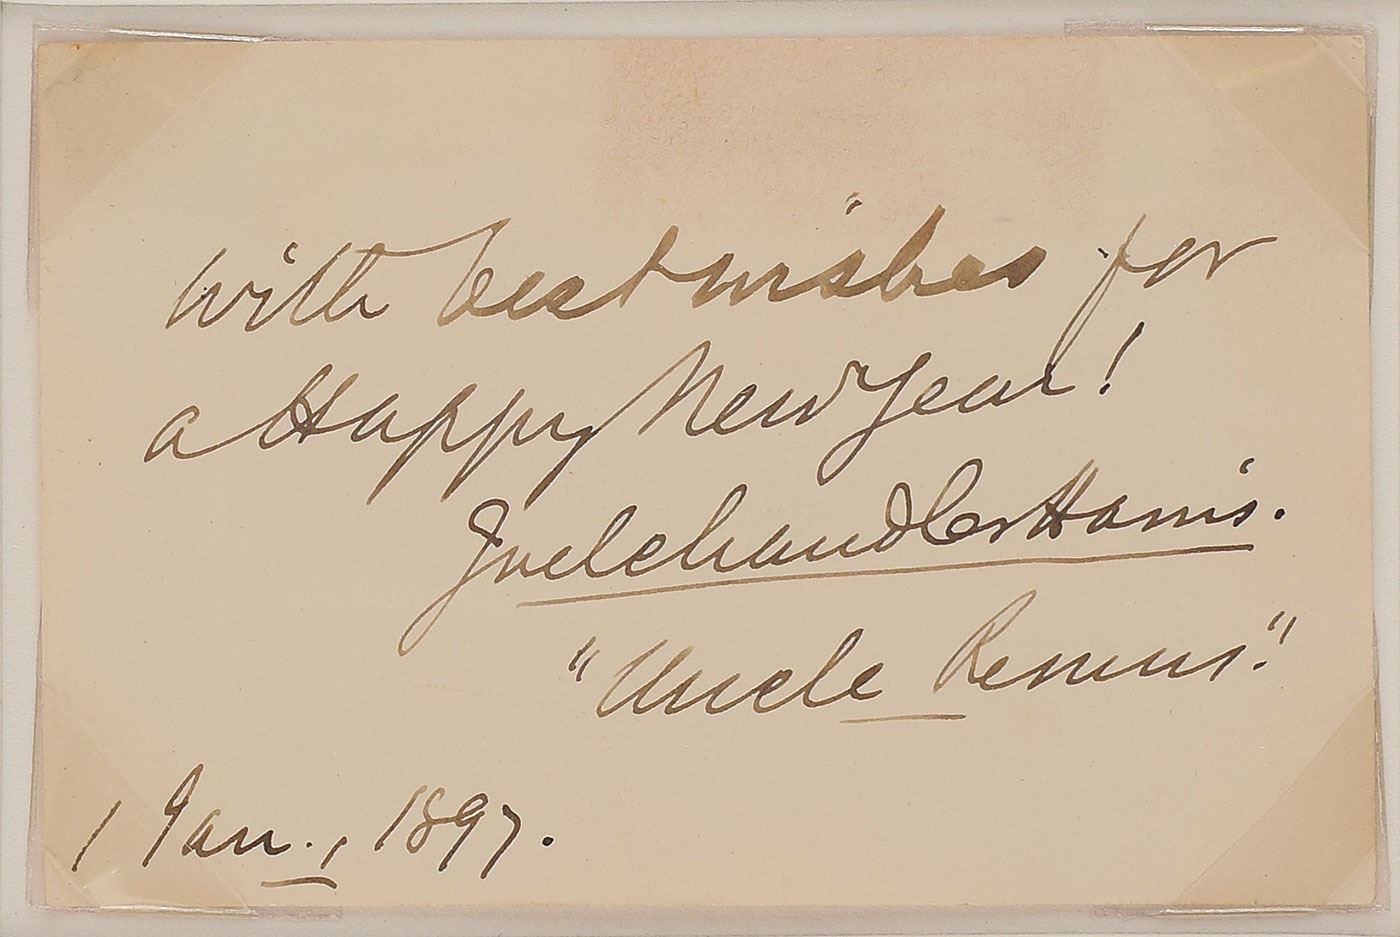 With best wishes for
a Happy New Year!
Joel Chandler Harris.
"Uncle Remus."
1 Jan., 1897.